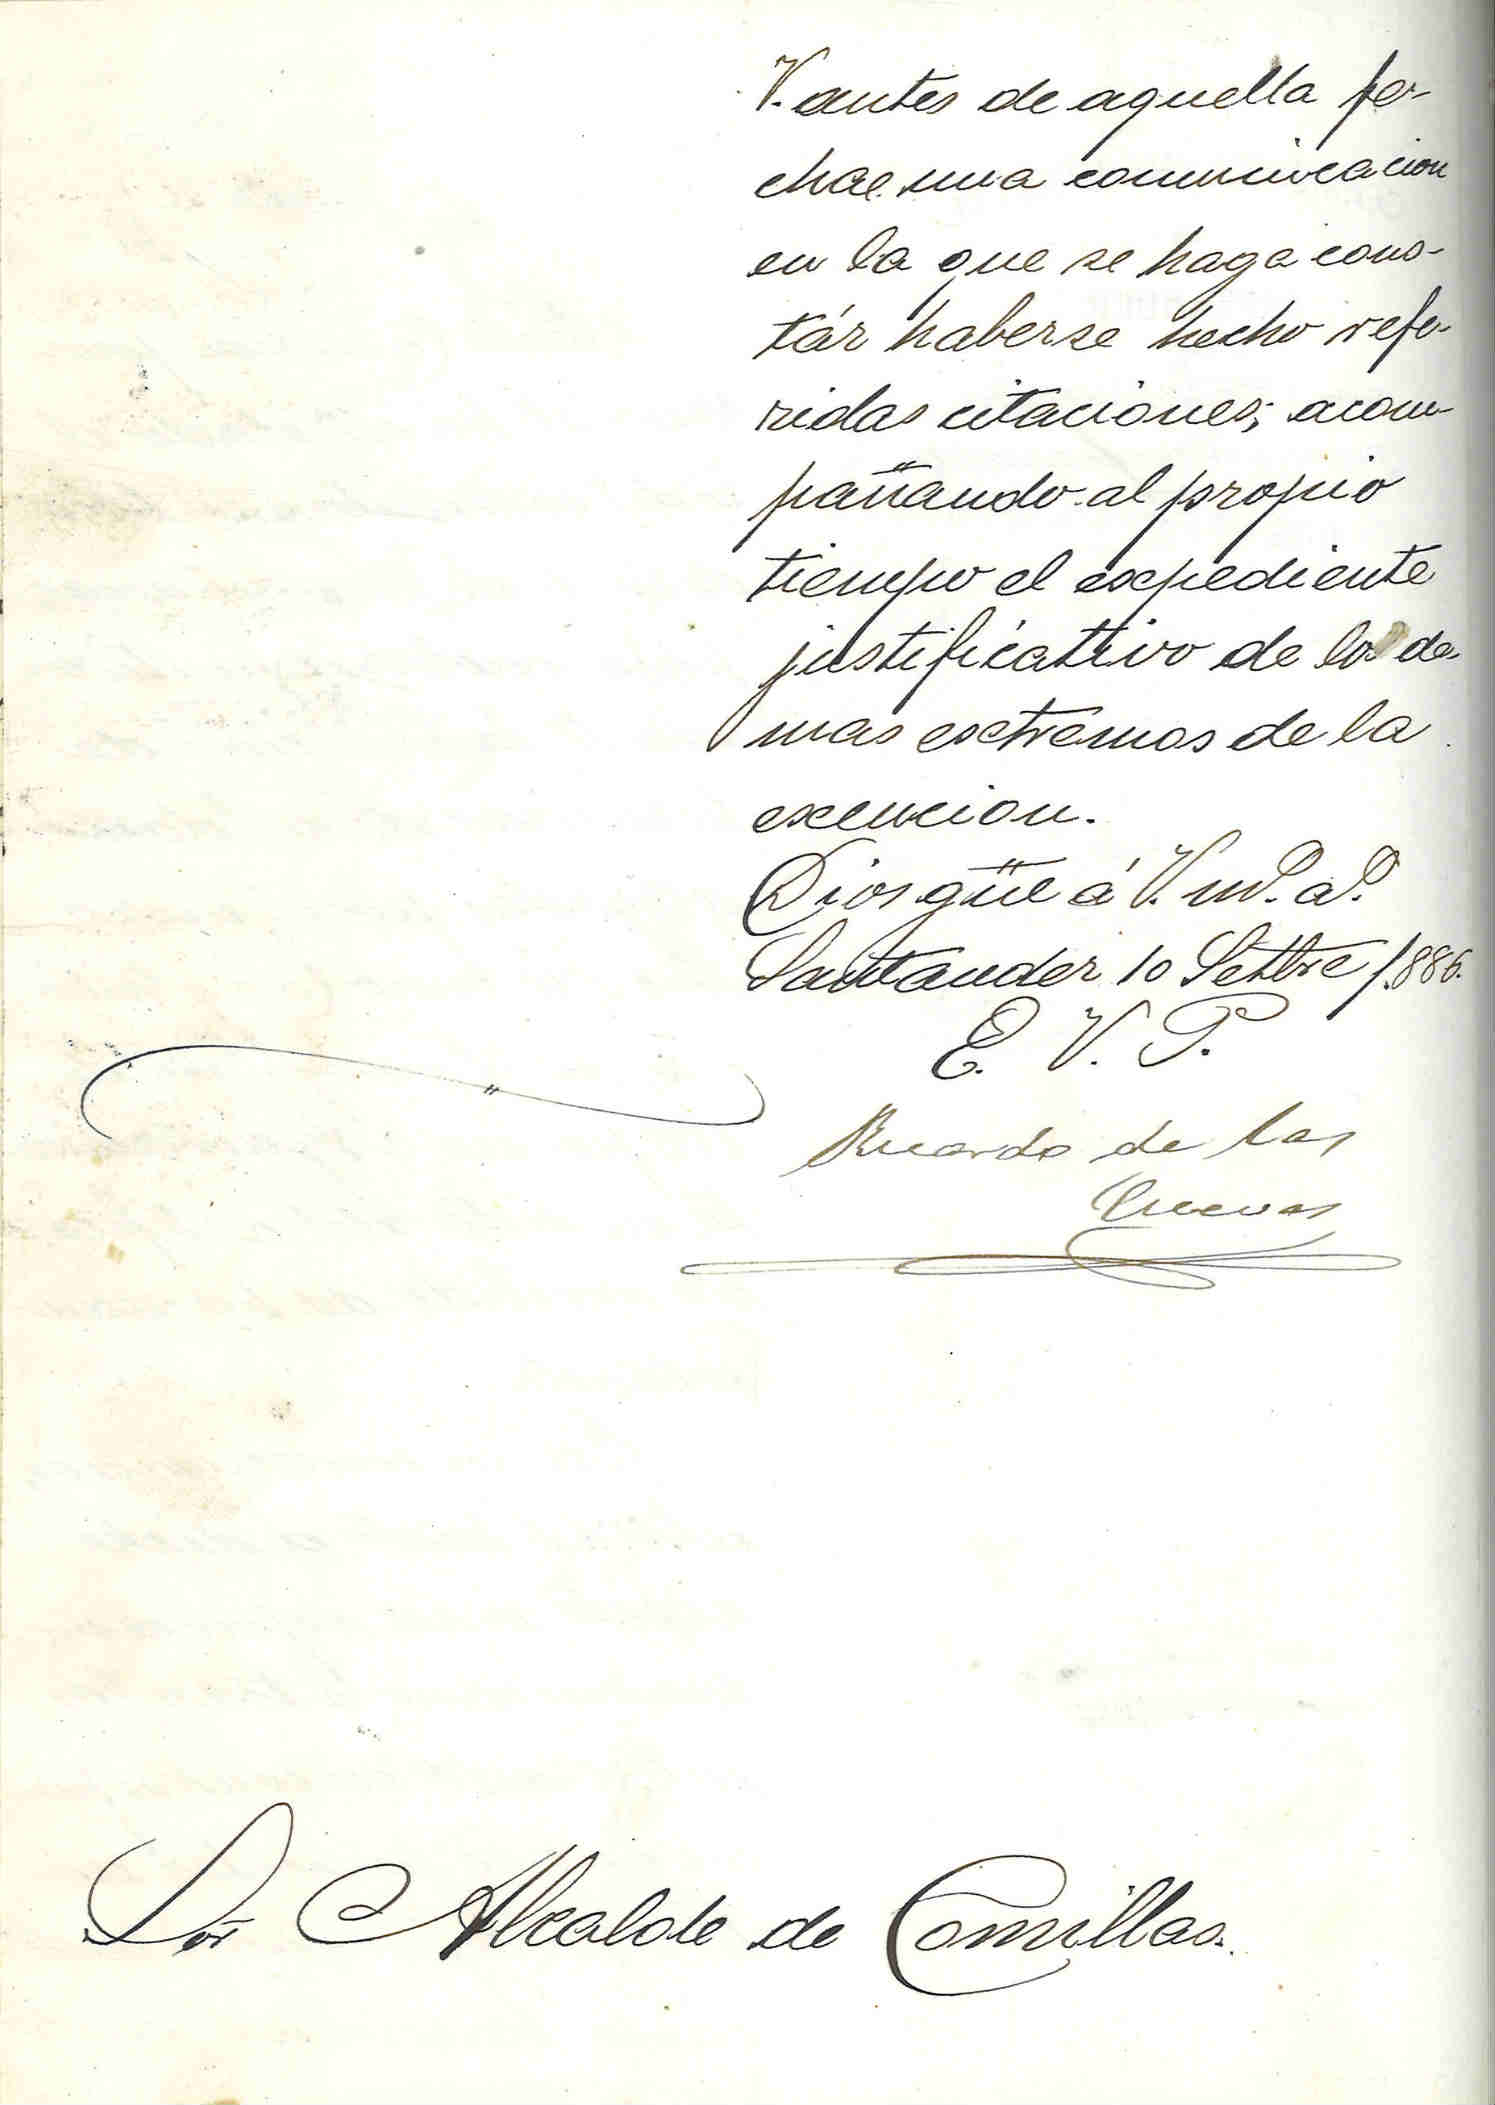 V. antes de aquella fe-
cha una comunicacion
en la que se haga cons-
tár haberse hecho refe-
ridas citaciones; acom-
pañando al propio
tiempo el expediente
justificativo de los de-
mas extremos de la
exencion.
Dios güe á V. ms. as.
Santander 10 Setbre 1.886.
E. V. P.
Ricardo de las
Cuevas
Sor Alcalde de Comillas.